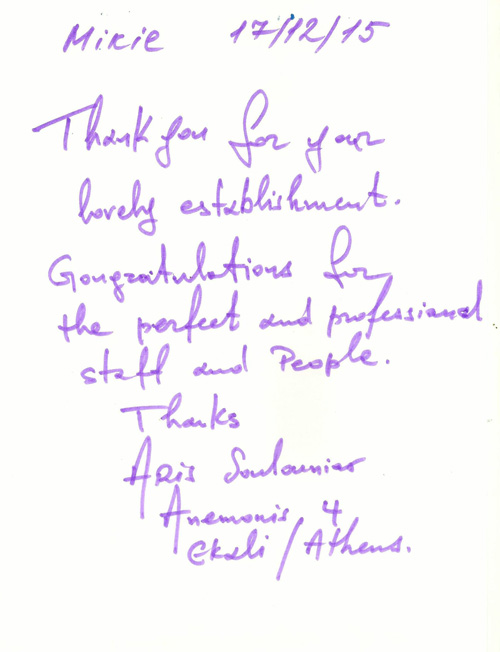 Mikie 17/12/15
Thank you for your
lovely establishment.
Gongratulations for
the perfect and professional
staff and People.
Thanks
Aris
Anemonis 4
Ekali / Athens.